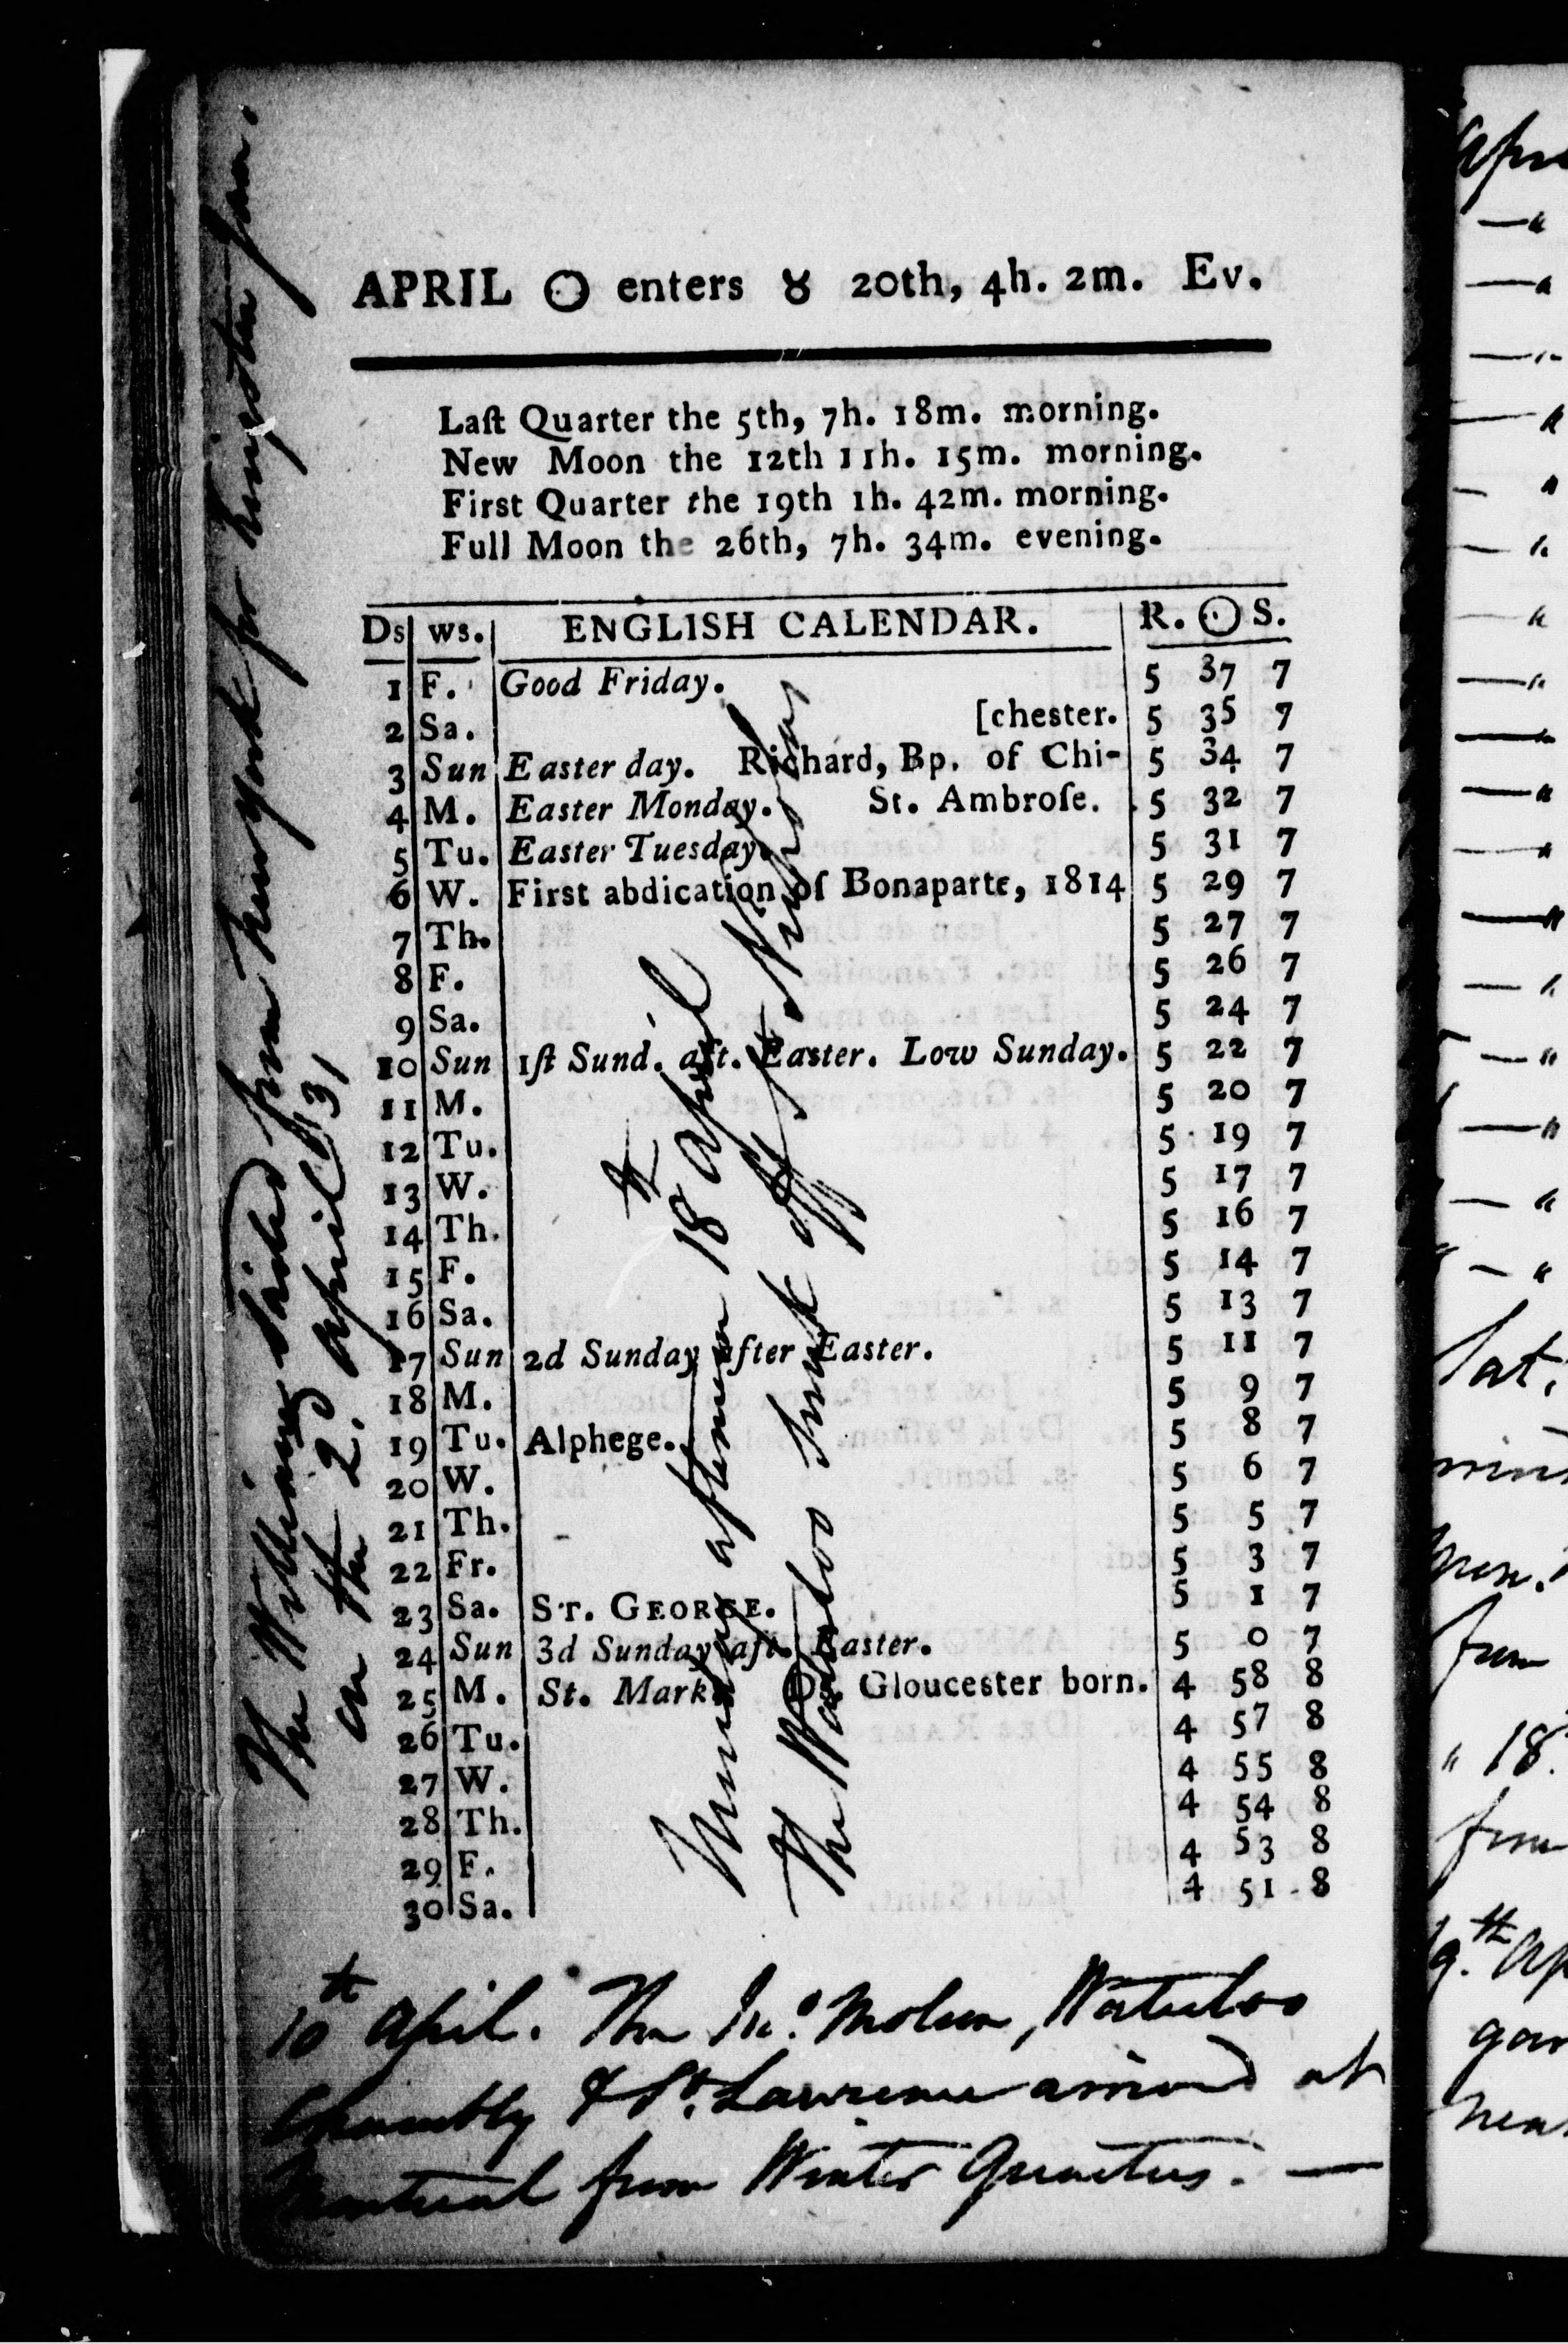 APRIL ☉ enters ♉ 20th, 4h. 2m. Ev.
Laſt Quarter the 5th, 7h. 18m. morning.
New Moon the 12th 11h. 15m. morning.
First Quarter the 19th 1h. 42m. morning.
Full Moon the 26th, 7h. 34m. evening.
Ds ws. ENGLISH CALENDAR. R. ☉ S.
1 F. Good Friday. 5 37 7
2 Sa. [chester. 5 35 7
3 Sun Easter day. Richard, Bp. of Chi- 5 34 7
4 M. Easter Monday. St. Ambroſe. 5 32 7
5 Tu. Easter Tuesday. 5 31 7
6 W. First abdication of Bonaparte, 1814 5 29 7
7 Th. 5 27 7
8 F. 5 26 7
9 Sa. 5 24 7
10 Sun 1ſt Sund. aft. Easter. Low Sunday. 5 22 7
11 M. 5 20 7
12 Tu. 5 19 7
13 W. 5 17 7
14 Th. 5 16 7
15 F. 5 14 7
16 Sa. 5 13 7
17 Sun 2d Sunday after Easter. 5 11 7
18 M. 5 9 7
19 Tu. Alphege. 5 8 7
20 W. 5 6 7
21 Th. 5 5 7
22 Fr. 5 3 7
23 Sa. ST. GEORGE. 5 1 7
24 Sun 3d Sunday aft. Easter. 5 0 7
25 M. St. Mark. Ds. Gloucester born. 4 58 8
26 Tu. 4 57 8
27 W. 4 55 8
28 Th. 4 54 8
29 F. 4 53 8
30 Sa. 4 51 8
The Williams Sailed from New york for Kingston Jam.
on the 2d. April 1831
Monday afternoon 18th April
The Waterloo sunk off
10th April. The Jno. Molson, Waterloo
Chambly & St. Lawrence arrived at
Montreal from Winter Quarters. —
Sat,
from
" 18
from